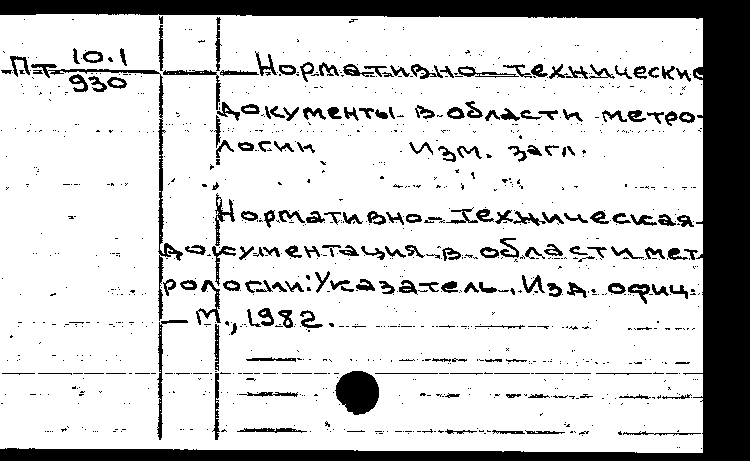 Пт 10.1
930
Нормативно-технические
документы в области метро-
логии Изм. загл.
Нормативно-техническая
документация в области мет
рологии: Указатель. Изд. офиц.
— М., 1982.